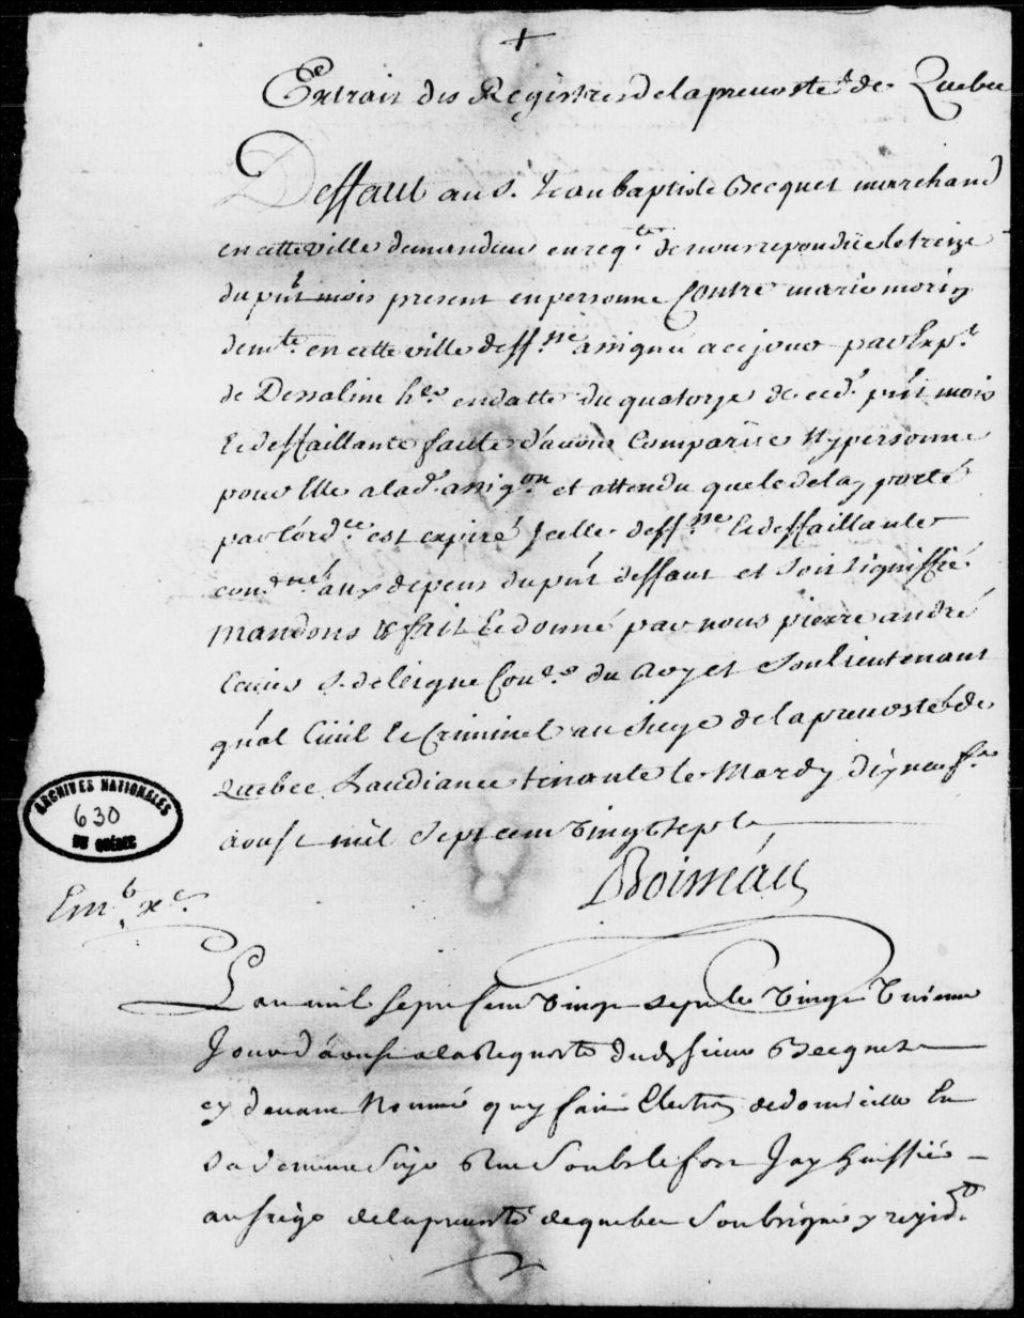 +
Extrait des Registres de la prevosté de Quebec
Deffaut au S. Jean baptiste Becquet marchand
en cette ville demandeur en req.te de nous repondüe le treize
du pnt mois present en personne Contre marie morin
demte. en cette ville deff.sse assignée a ce jour par Exp.t
de Dessaline h.er en datte du quatorze de ced. pnt mois
Et deffaillante faute d'avoir Comparüe Ny personne
pour Elle a lad. assig.on et attendu que le delay porté
par l'ord.ce est expiré Icelle deff.sse Et deffaillante
cond.née aux depens du pnt deffaut et soit signiffié
Mandons &c fait Et donné par nous pierre andré
Escuier S. de leigne Con.er du Roy et son lieutenant
g'nal Civil Et Criminel au siege de la prevosté de
Quebec L'audiance tenante le Mardy dix neuf.e
aoust mil sept cent vingt sept
Boiméau
ARCHIVES NATIONALES
630
DU QUÉBEC
L'an mil sept Cent vingt sept le vingt
Jour d'aoust a la Requeste dudt sieur Becquet
cy devant Nommé quy fait Election de domicille En
sa demeure size Rue Soubs le fort Jay huissier
au siege de la prevosté de quebec Soubsigné y resid.t